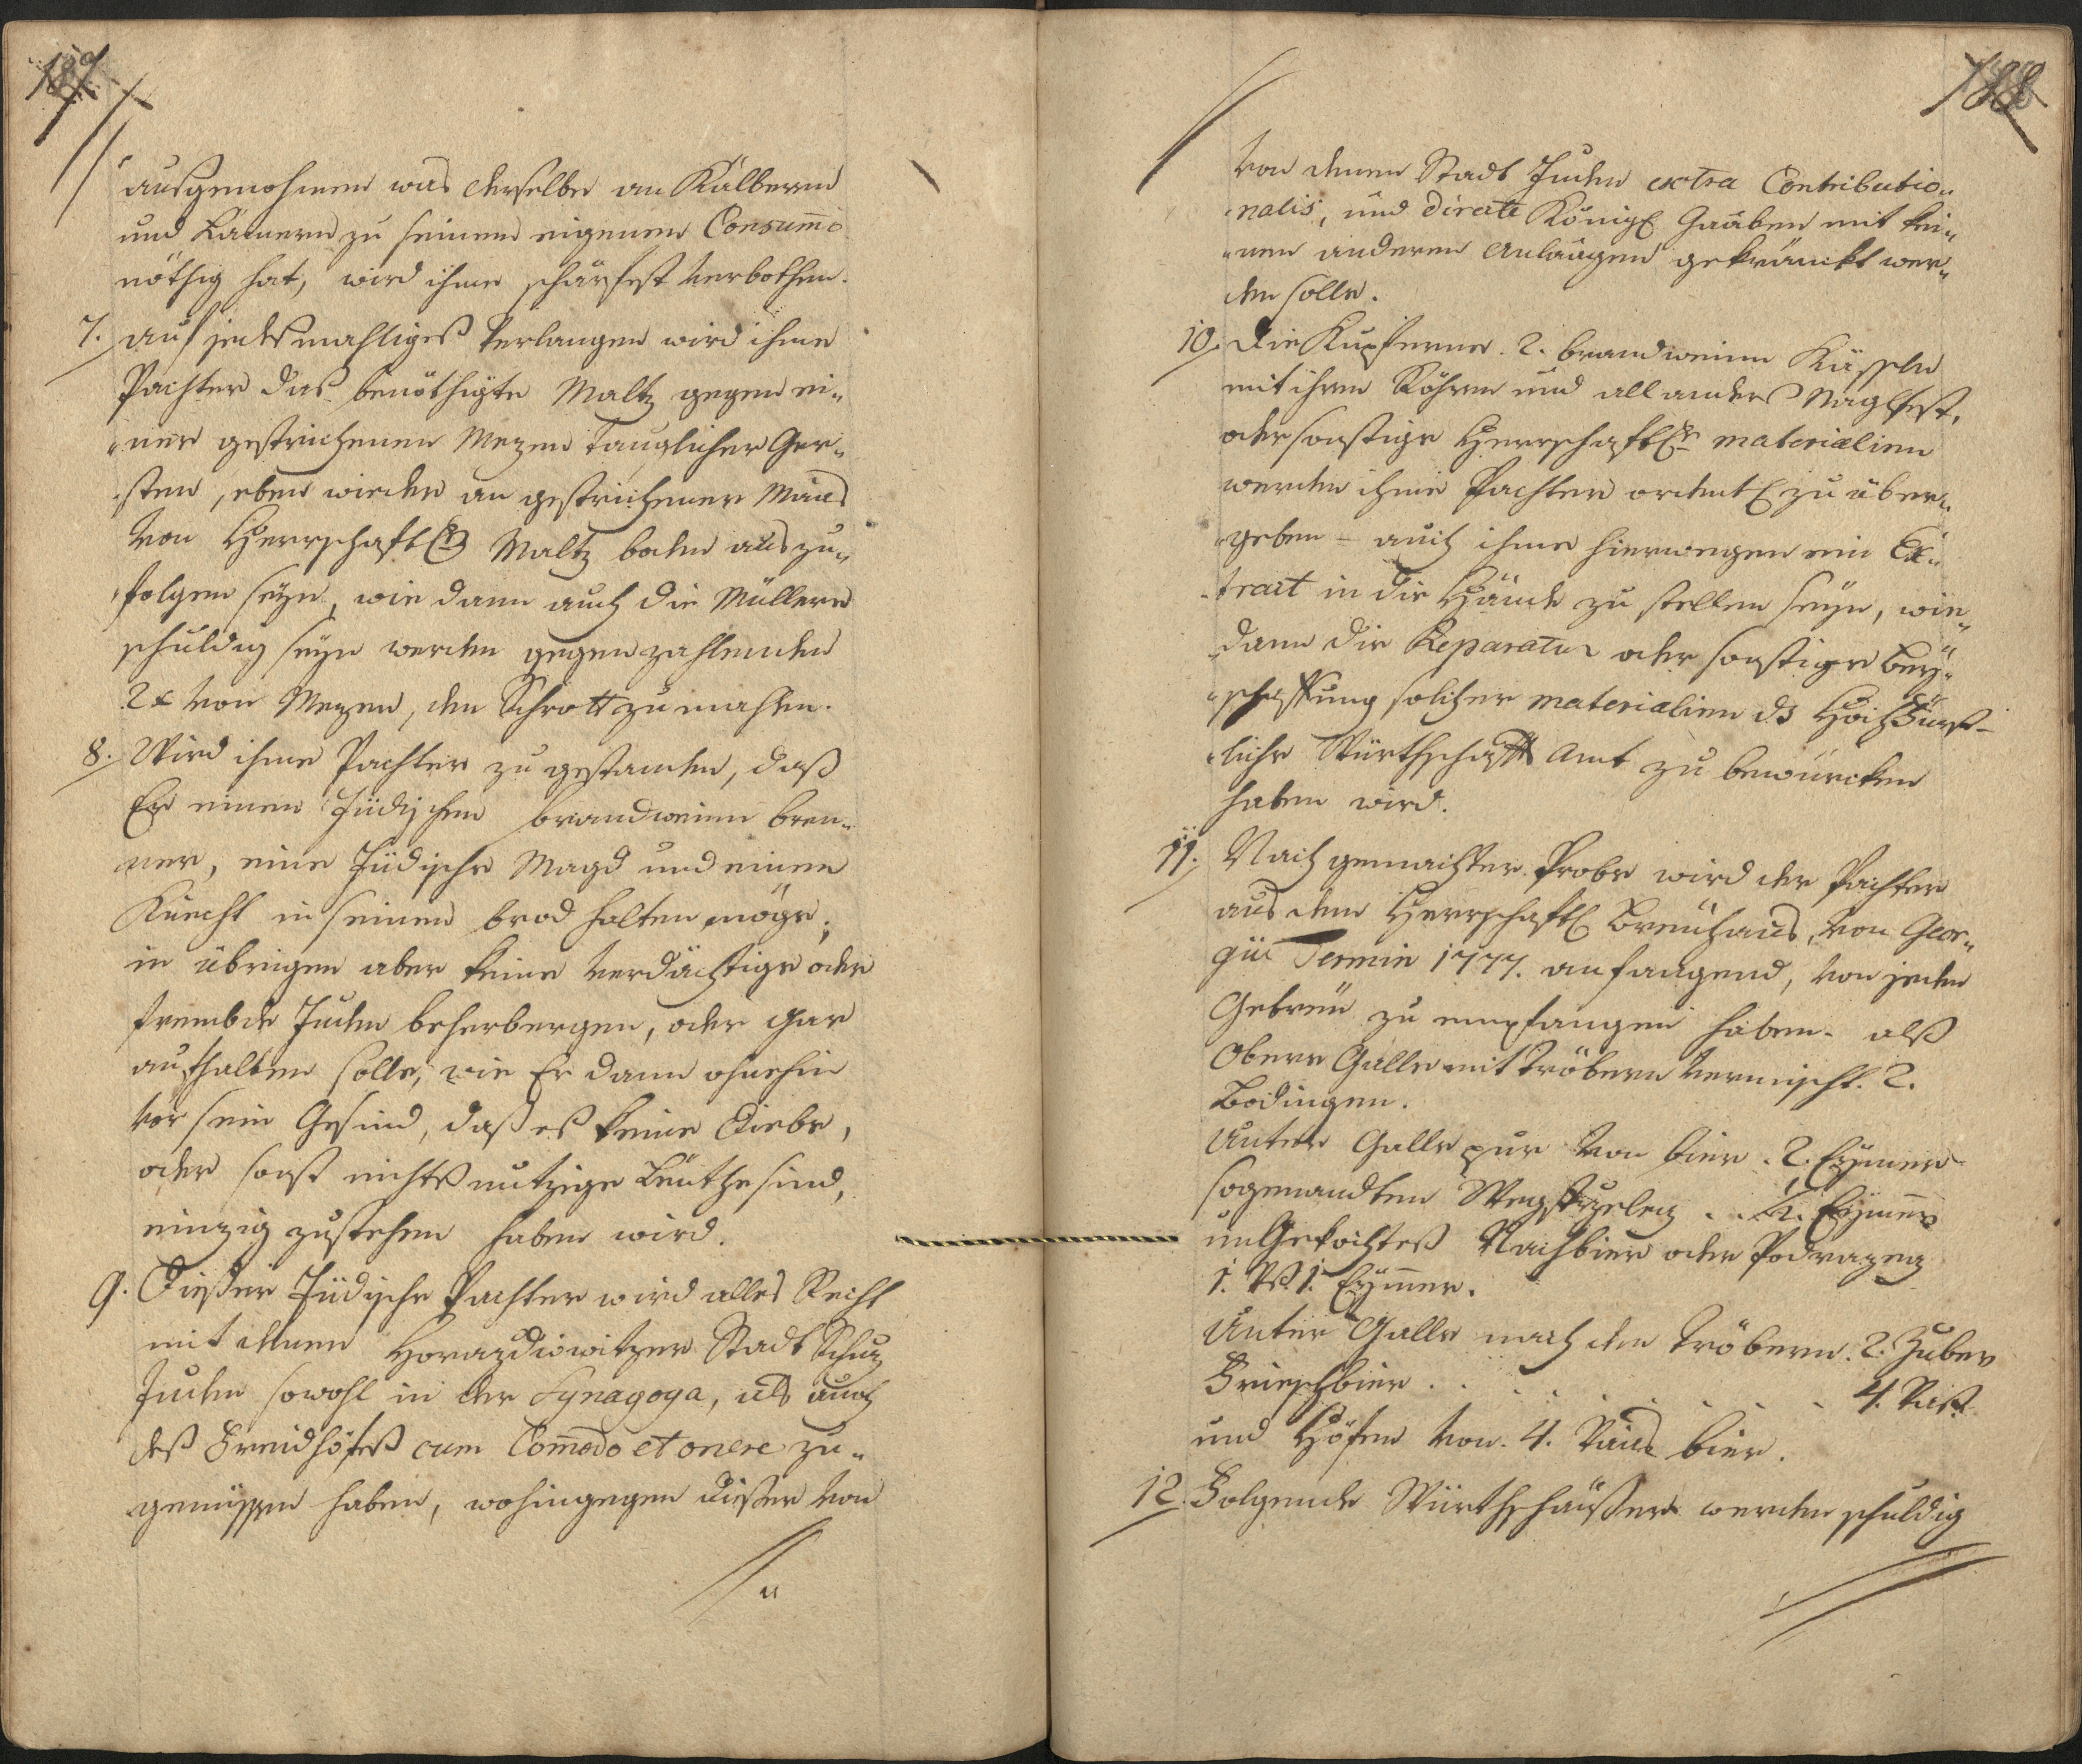 187
ausgenohmen was derselbe an Kälbern
und Lämern zu seinem eigenen Consumo
nöthig hat, wird ihme schärfest verbothen.
7. auf jedesmahliges Verlangen wird ihme
Pachter das benöthigte Maltz gegen ei„
„ner gestrichenen Mezen tauglicher Ger„
„sten, eben wieder an gestrichener Maas
von Herrschaftl. Maltz boden auszu„
folgen seyn, wie dann auch die Müllern
schuldig seyn werden gegen zahlenden
2 x von Mezen, den Schrott zu mahlen.
8. Wird ihme Pachter zu gestanden, daß
Er einen Jüdischen brandwein bren„
ner, eine Jüdische Magd und einen
Knecht in seinem brod halten möge;
in übrigen aber keine verdächtige oder
frembde Juden beherbergen, oder gar
aufhalten solle, wie Er dann ohnehin
vor sein Gesind, daß es keine Diebe,
oder sonst nichts nutzige Leuthe sind,
einzig zustehen haben wird.
9. Dießer Jüdische Pachter wird alles Recht
mit denen Horazdiowitzer Stadt Schutz
Juden sowohl in der Synagoga, als auch
deß Freidhofeß cum Commodo et onere zu„
genüssen haben, wohingegen dießer von
188
von denen Stadt Juden extra Contributio„
„nalis, und directe Königl Gaaben mit kei„
„nen anderen Anlaagen gekränckt wer„
den solle.
10. Die Kupferne 2. brandwein Kässeln
mit ihren Röhren und all anders Naglfest,
oder sonstige Herrschaftl. materialien
werden ihme Pachter ordentl zu über„
„geben – auch ihme hierwegen ein Ex„
„tract in die Hände zu stellen seyn, wie„
„dann die Reparatur oder sonstige bey„
„schaffung solcher materialien ds Hochfürst„
„liche Würthschafts Amt zu bewürcken
haben wird.
11. Nach gemachter Probe wird der Pachter
aus dem Herrschaftl Breuhaus, von Geor„
gii Termin 1777. anfangend, von jeden
Gebreu zu empfangen haben. alß
Obere Galle mit Tröbern vermischt. 2.
Bodingen.
Untere Galle pur von bier. 2. Eymer
sogenandten . . Eymer
un Gekochtes Nachbier oder Podrazeg
1. 1. Eymer.
Unter Galle nach den Tröbern. 2. Zuber
Frischbier . . . . . . . 4. Vaß
und Höfen von. 4. Vaas bier.
12. Folgende Würthshäußer werden schuldig